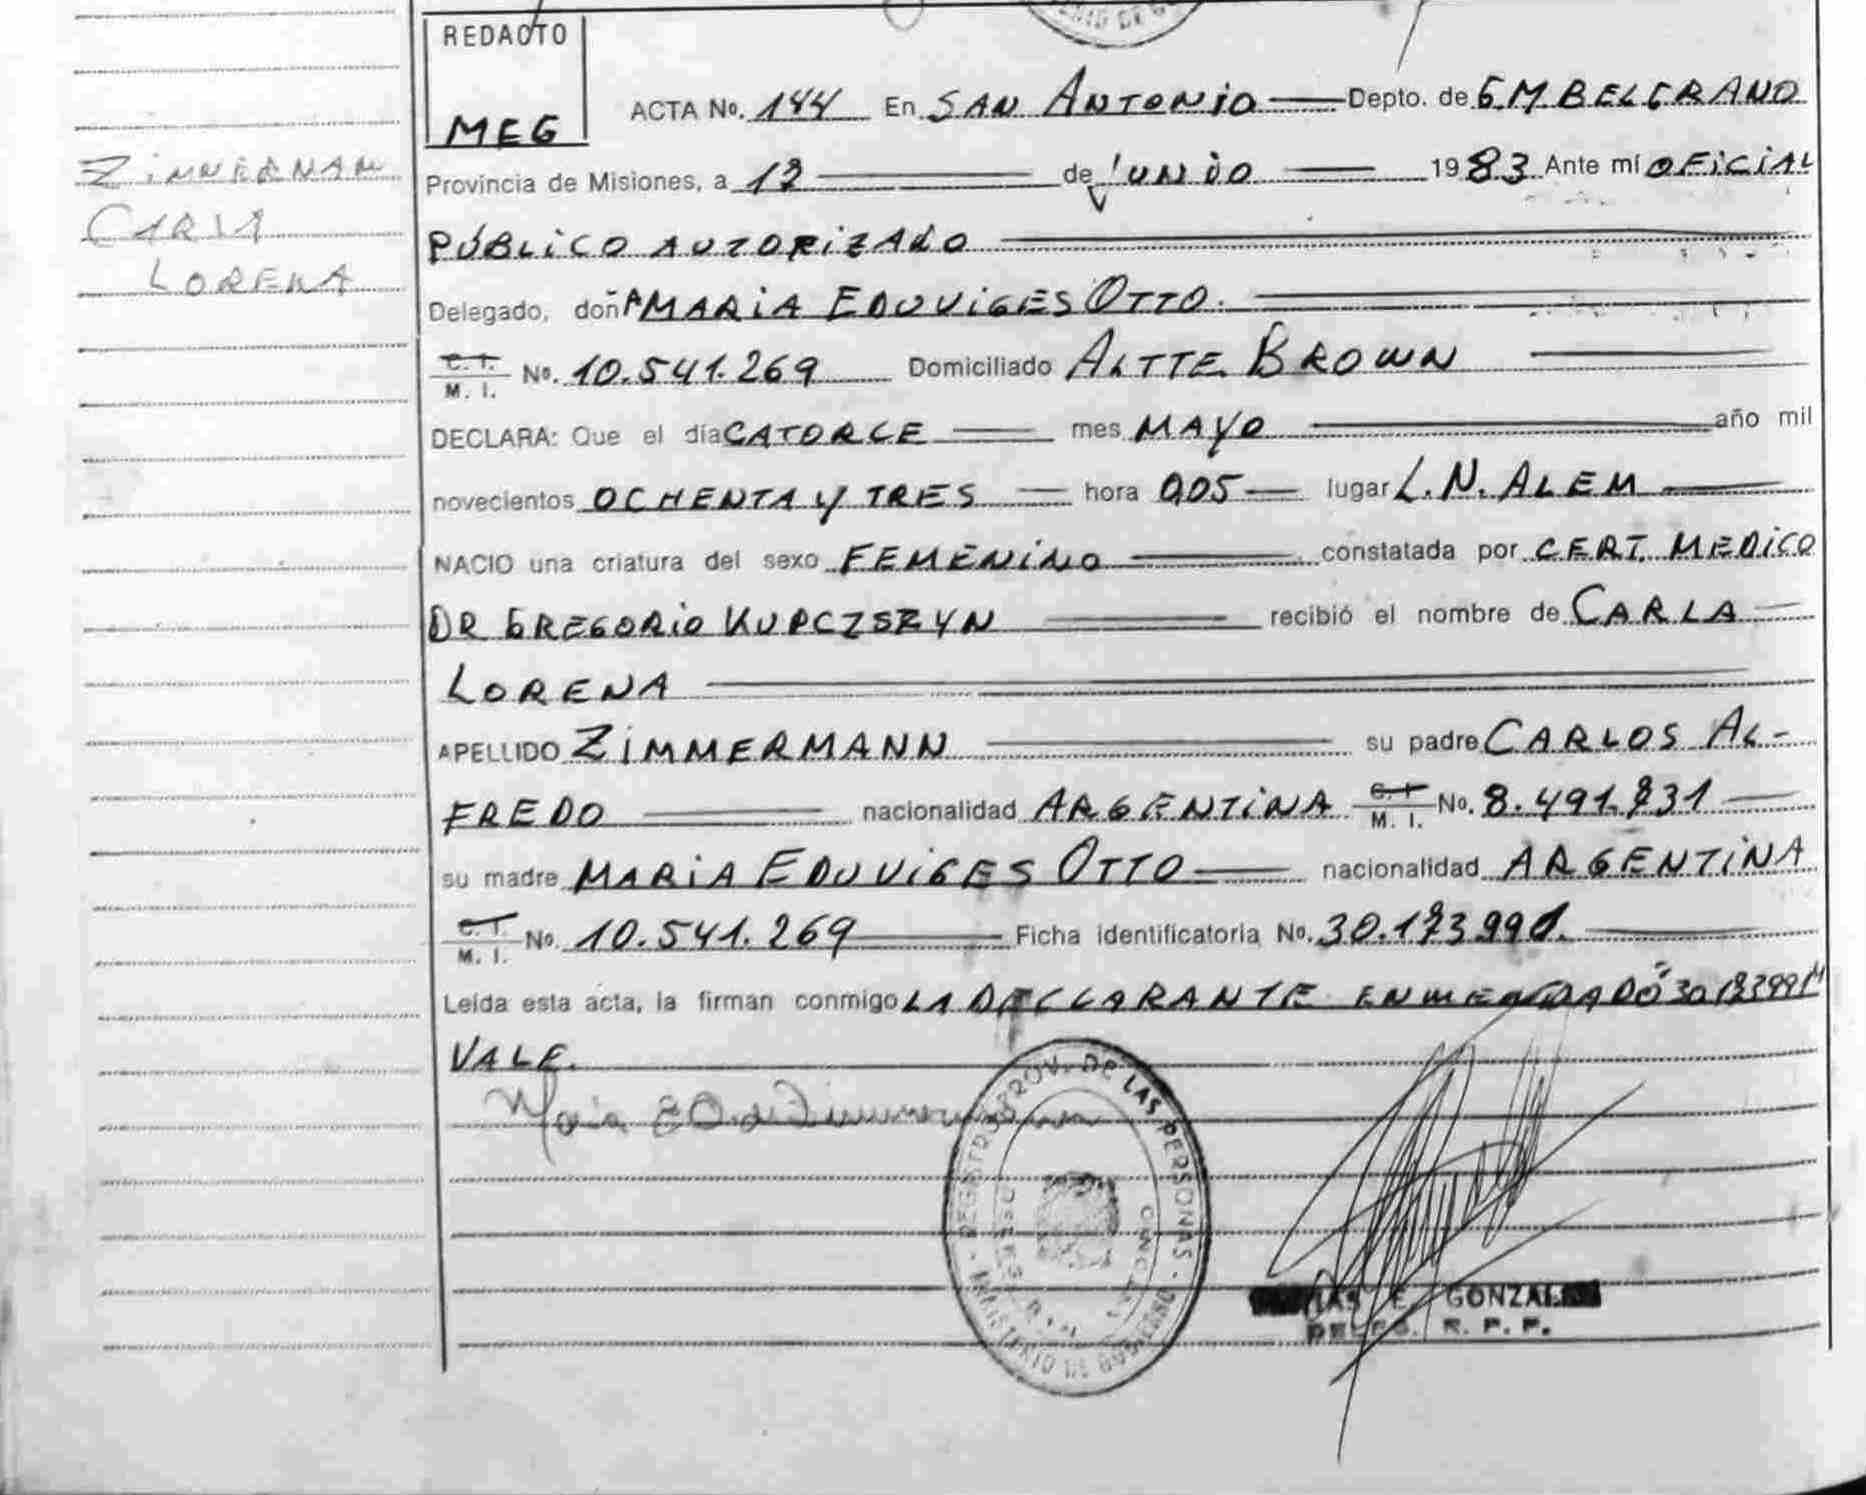 REDACTO
MEG
ACTA No. 144 En SAN ANTONIO Depto. de G M BELGRANO
Provincia de Misiones, a 12 de JUNIO 1983 Ante mí OFICIAL
PÚBLICO AUTORIZADO
Delegado, doñA MARIA EDUVIGES OTTO.
C. I.
M. I. No. 10.541.269 Domiciliado ALTTE. BROWN
DECLARA: Que el día CATORCE mes MAYO año mil
novecientos OCHENTA Y TRES hora 0,05 lugar L.N. ALEM
NACIO una criatura del sexo FEMENINO constatada por CERT. MEDICO
DR GREGORIO KUPCZSZYN recibió el nombre de CARLA
LORENA
APELLIDO ZIMMERMANN su padre CARLOS AL-
FREDO nacionalidad ARGENTINA C. I. M. I. No. 8.491.831
su madre MARIA EDUVIGES OTTO nacionalidad ARGENTINA
C. I.
M. I. No. 10.541.269 Ficha identificatoria No.
Leída esta acta, la firman conmigo LA DECLARANTE ENMENDADO
VALE.
Maria E O. de Zimmermann
ZIMMERNAN
CARLA
LORENA
REGISTRO PROV. DE LAS PERSONAS - MINISTERIO DE GOBIERNO
E. GONZALEZ
R. P. P.